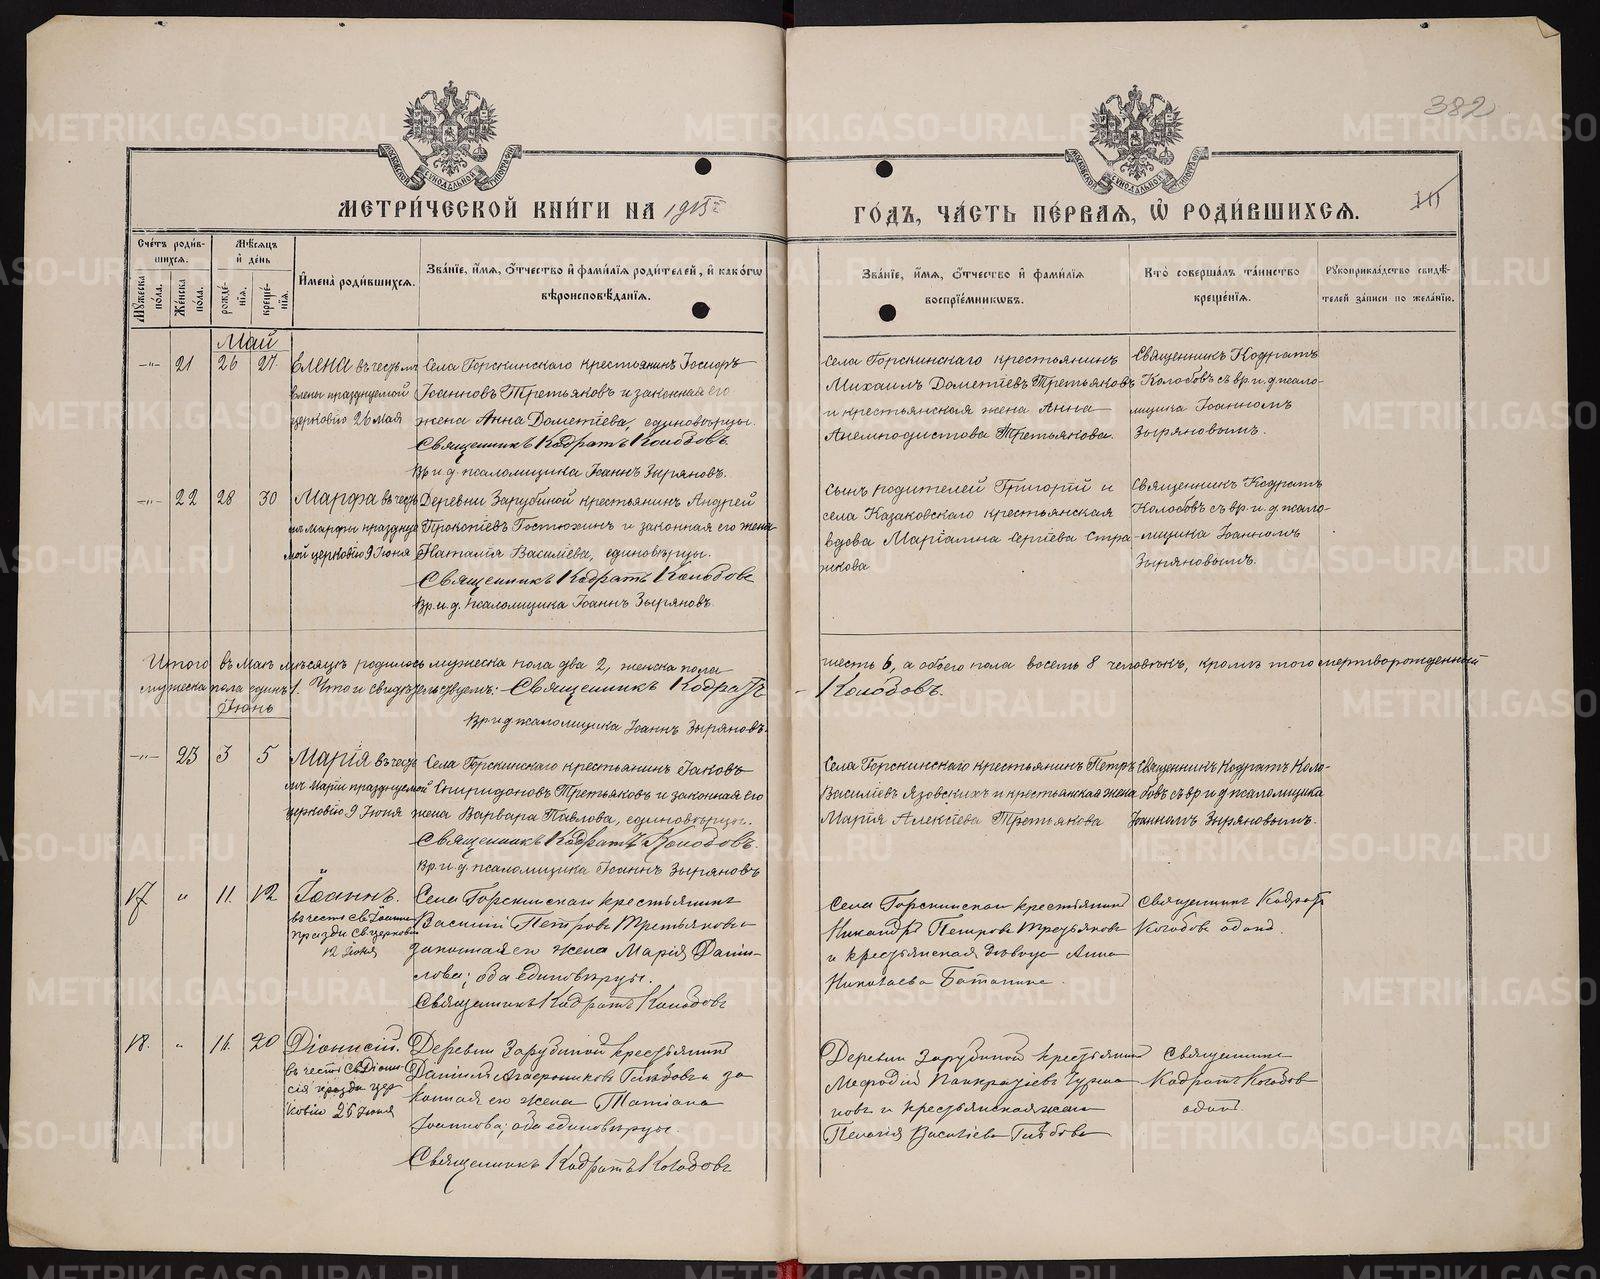 382
МЕТРИ́ЧЕСКОЙ КНИ́ГИ НА 1915й
ГО́ДЪ, ЧА́СТЬ ПЕ́РВАЯ, Ѽ РОДИ́ВШИХСЯ.
Сче́тъ роди́в-
шихся.
Мѣ́сяцъ
и҆ де́нь
Му́жеска по́ла.
Же́нска по́ла.
рожде́-
нія.
креще́-
нія.
И҆мена̀ роди́вшихся.
Зва́ніе, и҆́мя, ѻ҆́тчество и҆ фами́лія роди́телей, и҆ како́гѡ
вѣроисповѣ́данія.
Зва́ніе, и҆́мя, ѻ҆́тчество и҆ фами́лія
воспрїе́мникѡвъ.
Кто̀ соверша́лъ та́инство
креще́нія.
Рꙋкоприкла́дство свидѣ́-
телей за́писи по жела́нію.
Май
-"- 21 26 27.
Елена въ честь мч
Елены празднуемой
церковію 26 мая
Села Горскинскаго крестьянинъ Іосифъ
Іоанновъ Третьяковъ и законная его
жена Анна Дометіева, единовѣрцы.
Священникъ Кодратъ Колобовъ.
Вр. и. д. псаломщика Іоаннъ Зыряновъ.
Села Горскинскаго крестьянинъ
Михаилъ Дометіевъ Третьяковъ
и крестьянская жена Анна
Анемподистова Третьякова.
Священникъ Кодратъ
Колобовъ съ вр. и. д. псало-
мщика Іоанномъ
Зыряновымъ.
-"- 22 28 30
Марфа въ честь
мц Марфы праздну
мой церковію 9 Іюня
Деревни Зарубиной крестьянинъ Андрей
Прокопіевъ Гостюхинъ и законная его жена
Наталія Василіева, единовѣрцы.
Священникъ Кодратъ Колобовъ
Вр. и. д. псаломщика Іоаннъ Зыряновъ.
Сынъ родителей Григорій и
села Казаковскаго крестьянская
вдова Маріанна Сергіева Стра
никова
Священникъ Кодратъ
Колобовъ съ вр. и. д псало-
мщика Іоанномъ
Зыряновымъ.
Итого въ маѣ мѣсяцѣ родилось мужеска пола два 2, женска пола
шесть 6, а обоего пола восемь 8 человѣкъ, кромѣ того мертворожденный
мужеска пола единъ 1. Что и свидѣтельствуемъ: Священникъ Кодратъ
Колобовъ.
Вр и д псаломщика Іоаннъ Зыряновъ.
Іюнь
-"- 23 3 5
Марія въ честь
мц Маріи празднуемой
церковію 9 Іюня
Села Горскинскаго крестьянинъ Іаковъ
Спиридоновъ Третьяковъ и законная его
жена Варвара Павлова, единовѣрцы.
Священникъ Кодратъ Колобовъ.
Вр. и. д. псаломщика Іоаннъ Зыряновъ
Села Горскинскаго крестьянинъ Петръ
Василіевъ Язовскихъ и крестьянская жена
Марія Алексіева Третьякова
Священникъ Кодратъ Коло-
бовъ съ вр и д псаломщика
Іоанномъ Зыряновымъ.
17 " 11. 12
Іоаннъ.
въ честь св. Іоанна
празд. св. церковію
12 Іюня
Села Горскинскаго крестьянинъ
Василій Петровъ Третьяковъ и
законная его жена Марія Дани-
лова; оба единовѣрцы.
Священникъ Кодратъ Колобовъ
Села Горскинскаго крестьянинъ
Никандръ Петровъ Третьяковъ
и крестьянская дѣвица Анна
Николаева
Священникъ Кодратъ
Колобовъ одинъ.
18. " 16. 20
Діонисій.
въ честь св. Діони-
сія празд. цер
ковію 26 Іюня
Деревни Зарубиной крестьянинъ
Даніилъ Глѣбовъ и за
конная его жена Татіана
Іоаннова; оба единовѣрцы.
Священникъ Кодратъ Колобовъ
Деревни Зарубиной крестьянинъ
Мефодій Панкратіевъ
новъ и крестьянская жена
Пелагія Василіева Глѣбова
Священникъ
Кодратъ Колобовъ
одинъ.
METRIKI.GASO-URAL.RU